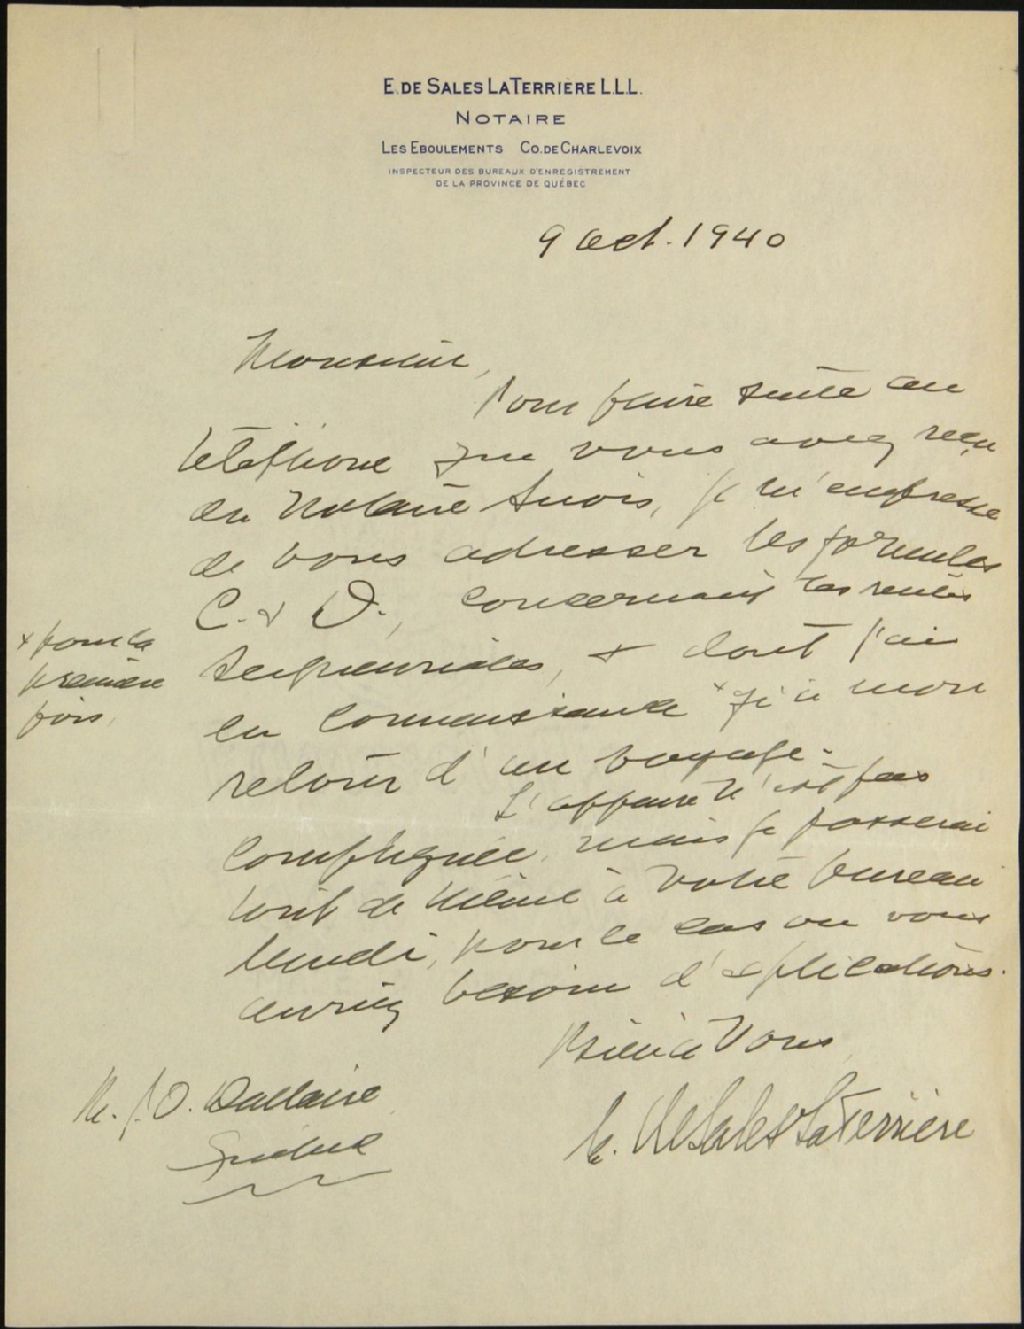 E. DE SALES LATERRIÈRE L.L.L.
NOTAIRE
LES EBOULEMENTS CO. DE CHARLEVOIX
INSPECTEUR DES BUREAUX D'ENREGISTREMENT
DE LA PROVINCE DE QUÉBEC
9 oct. 1940
Monsieur,
Pour faire suite au
téléphone que vous avez reçu
du Notaire, je m'empresse
de vous adresser les formules
C. & D., concernant les rentes
seigneuriales, & dont j'ai
eu connaissance x qu'à mon
retour d'un voyage.
x pour la
première
fois,
L'affaire n'est pas
compliquée, mais je passerai
tout de même à votre bureau
lundi, pour le cas où vous
auriez besoin d'explications.
Bien à Vous,
E. de Sales LaTerrière
M. J. O. Dallaire
Québec